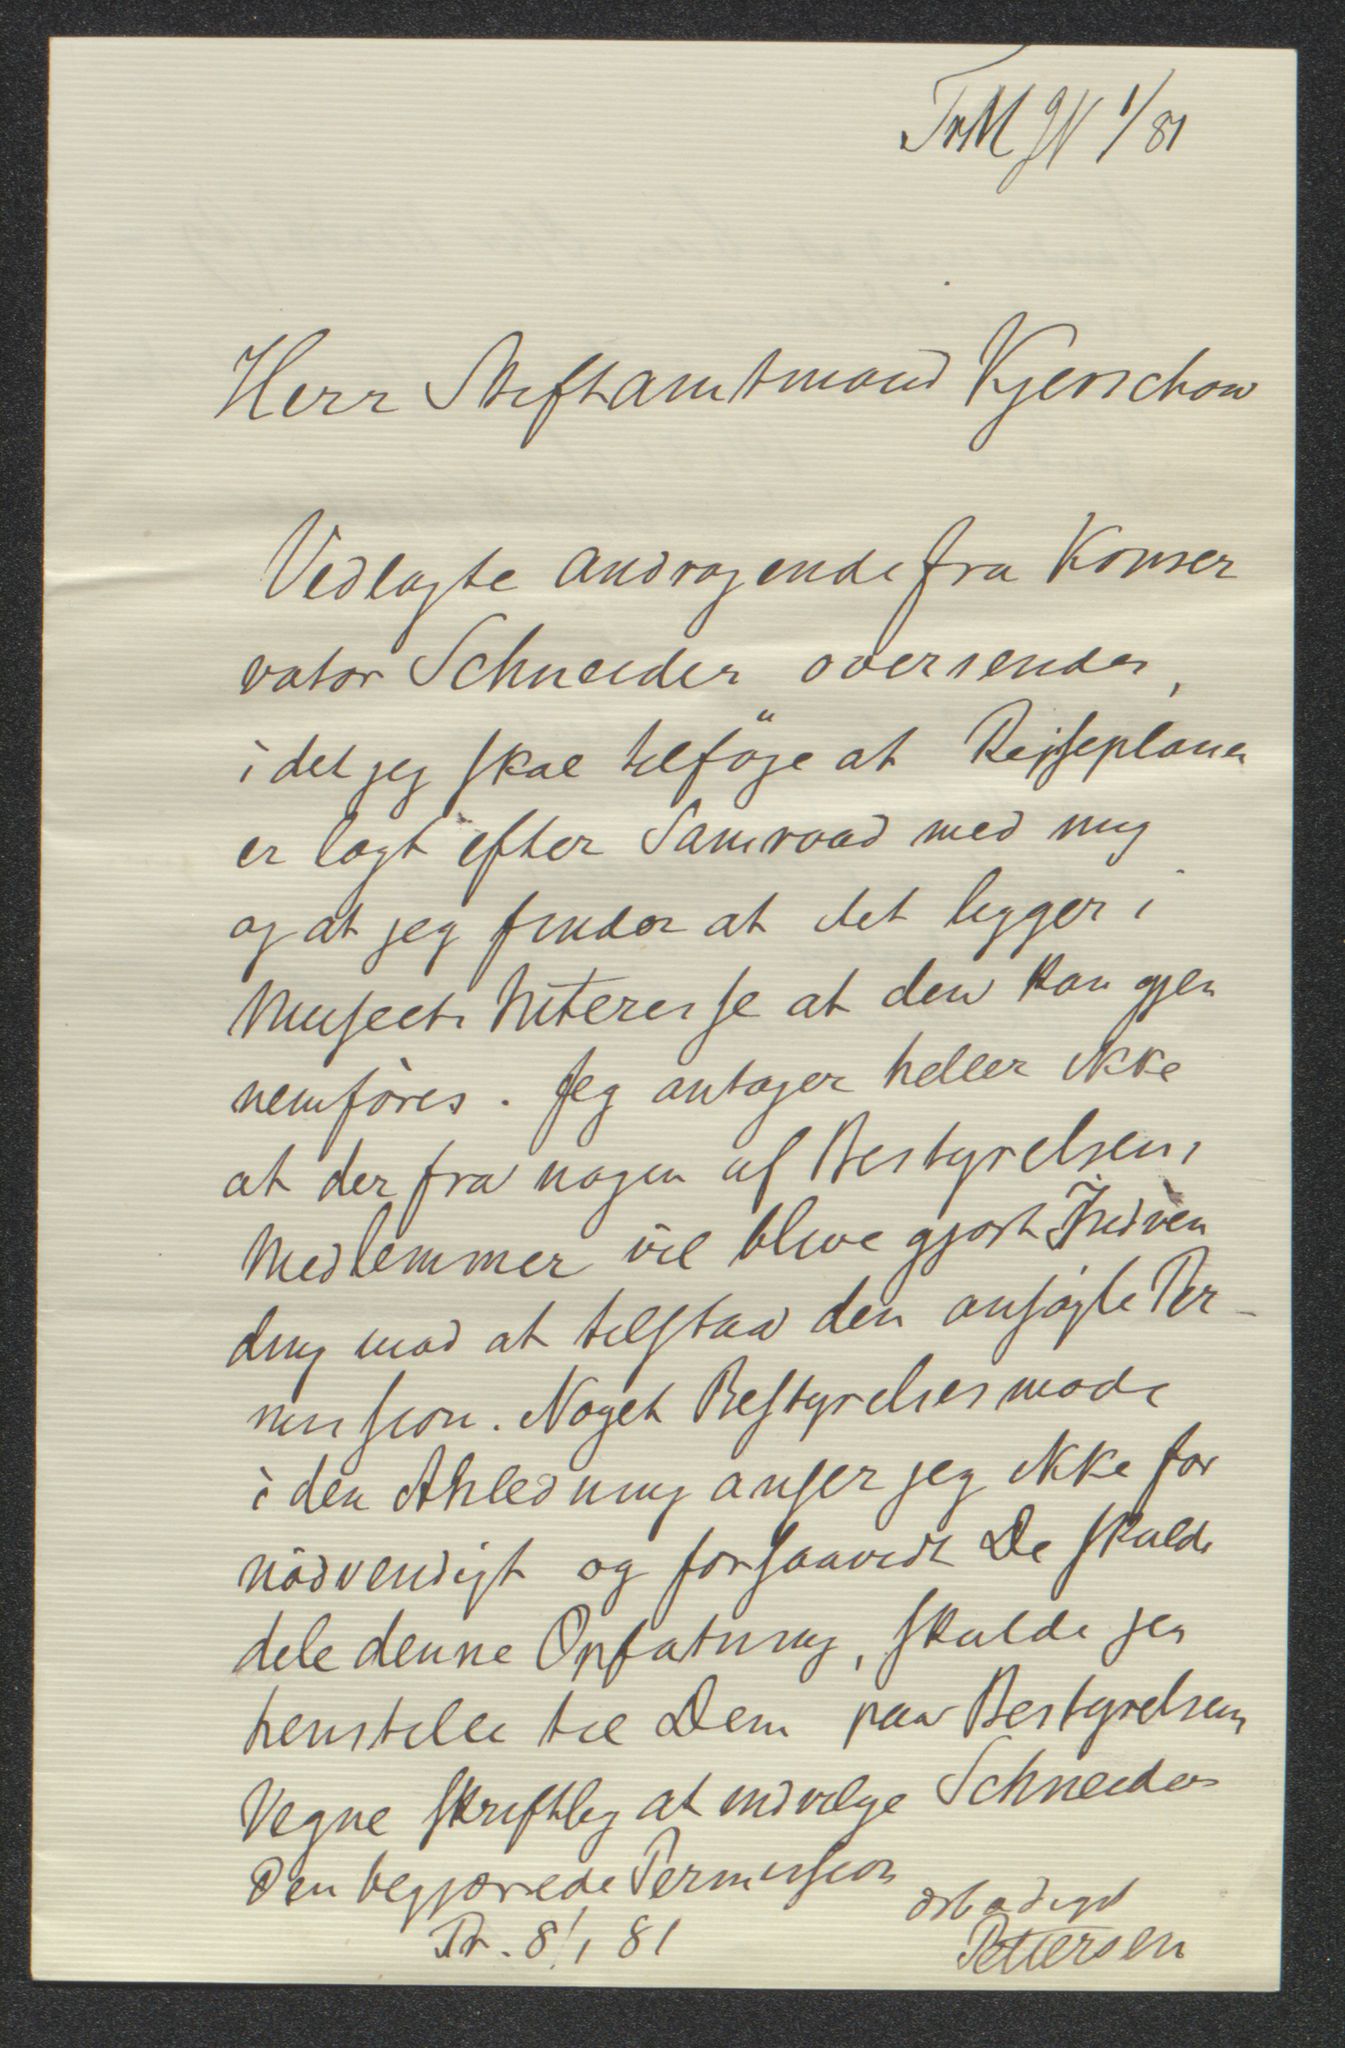 TrM JN 1/81
Herr Stiftamtmand Kjerschow
Vedlagte Andragende fra Konser
vator Schneider oversendes,
idet jeg skal tilføje at Rejseplanen
er lagt efter Samraad med mig
og at jeg finder at det ligger i
Museets Interesse at den kan gjen
nemføres. Jeg antager heller ikke
at der fra nogen af Bestyrelsens
Medlemmer vil blive gjort Indven
ding mod at tilstaa den ansøgte Per-
mission. Noget Bestyrelsesmøde
i den Anledning anser jeg ikke for
nødvendigt og forsaavidt De skulde
dele denne Opfatning, skulde jeg
henstille til Dem paa Bestyrelsens
Vegne skriftlig at indvilge Schneider
den begjærede Permission
ærbødigst
Tr. 8/1 81
Pettersen